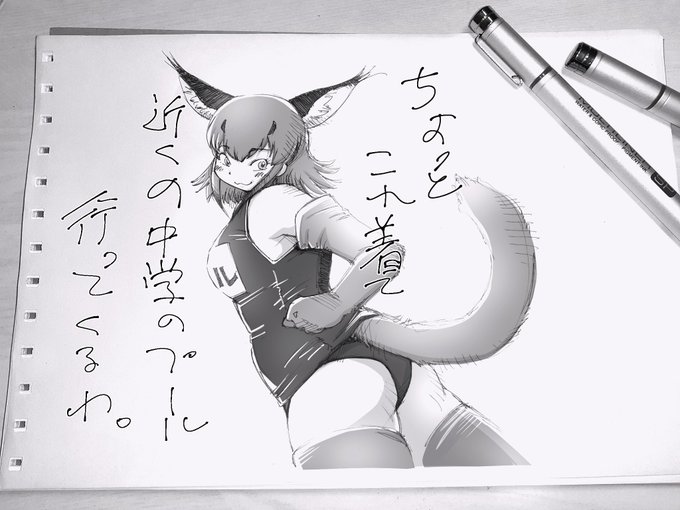 ちょっと
これ着て
近くの中学のプール
行ってくるわ。
ル